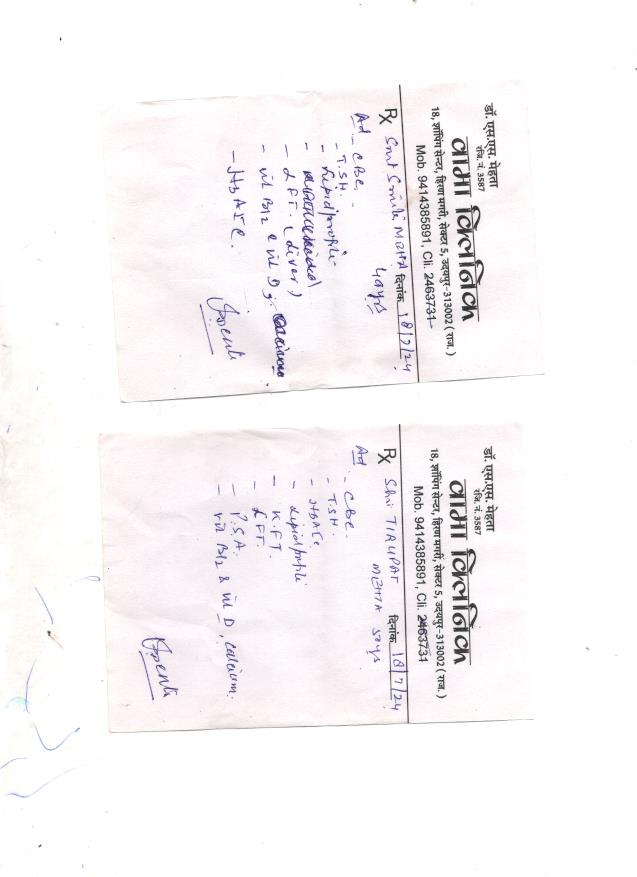 डॉ. एस.एस. मेहता
रजि. नं. 3587
वामा क्लिनिक
18, शॉपिंग सेन्टर, हिरण मगरी, सेक्टर 5, उदयपुर-313002 (राज.)
Mob. 9414385891, Cli. 2463731
दिनांक 18/7/24
Rx Smt Smile MEHTA
40yrs
Ad - CBC.
- T.S.H.
- Lipid profile
- LFT. (Liver)
- vit B12 & vit D3
- HbA1C.
डॉ. एस.एस. मेहता
रजि. नं. 3587
वामा क्लिनिक
18, शॉपिंग सेन्टर, हिरण मगरी, सेक्टर 5, उदयपुर-313002 (राज.)
Mob. 9414385891, Cli. 2463731
दिनांक 18/7/24
Rx Shri TIRUPAT
MEHTA 50yrs
Ad - CBC.
- T.S.H
- HbA1c
- Lipid profile
- K.F.T.
- LFT.
- P.S.A.
- vit B12 & vit D, calcium.